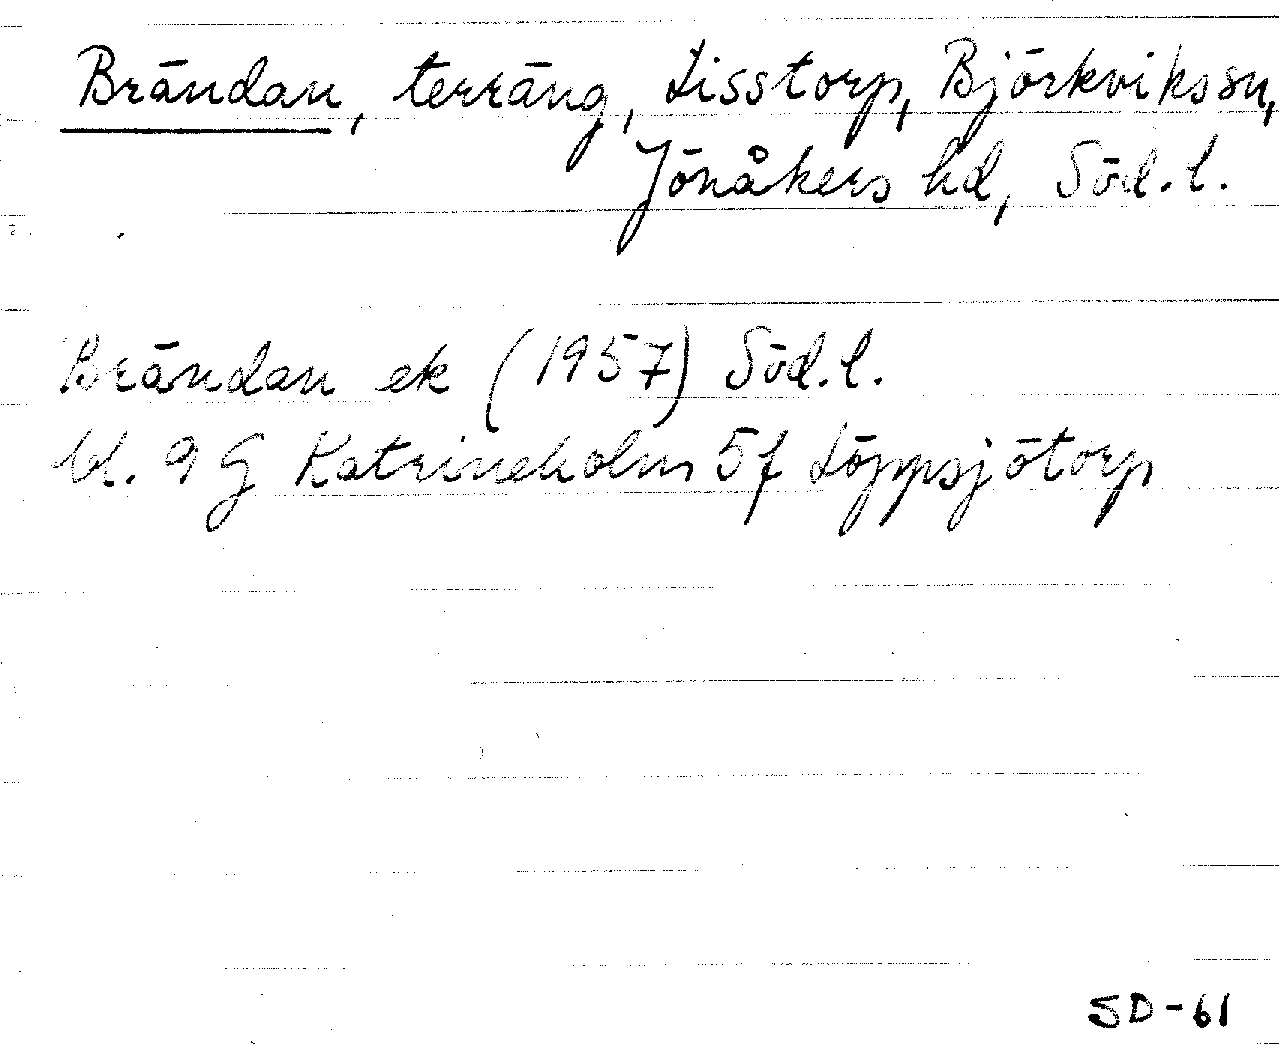 Brändan, terräng, Lisstorp, Björkviks sn,
Jönåkers hd, Söd. l.
Brändan ek (1957) Söd. l.
bl. 9 G Katrineholm 5f Löppsjötorp
SD-61